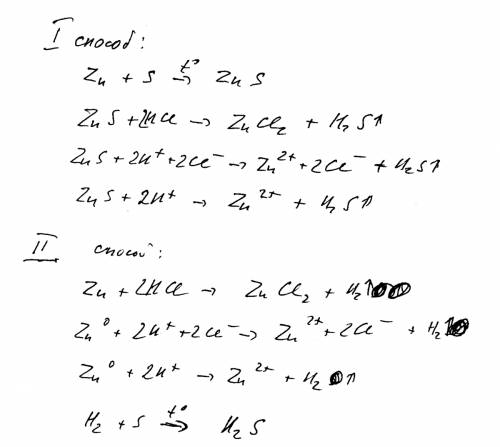 I способ:
Zn + S t°→ Zn S
Zn S + 2HCl → Zn Cl₂ + H₂ S↑
Zn S + 2H⁺ + 2Cl⁻ → Zn²⁺ + 2Cl⁻ + H₂S↑
Zn S + 2H⁺ → Zn²⁺ + H₂ S↑
II способ:
Zn + 2HCl → Zn Cl₂ + H₂↑
Zn⁰ + 2H⁺ + 2Cl⁻ → Zn²⁺ + 2Cl⁻ + H₂↑
Zn⁰ + 2H⁺ → Zn²⁺ + H₂ ↑
H₂ + S t°→ H₂ S